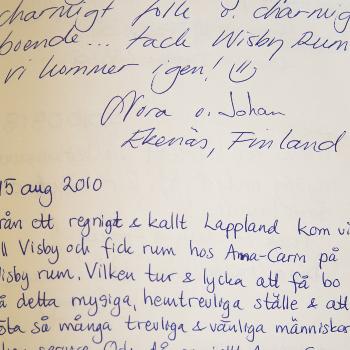 charmigt folk o. charmig
boende... tack Wisby Rum
vi kommer igen!
Nora o. Johan
Ekenäs, Finland
15 aug 2010
rån ett regnigt & kallt Lappland kom vi
ll Visby och fick rum hos Ann-Carin på
isby rum. Vilken tur & lycka att få bo
å detta mysiga, hemtrevliga ställe & att
öta så många trevliga & vänliga människor